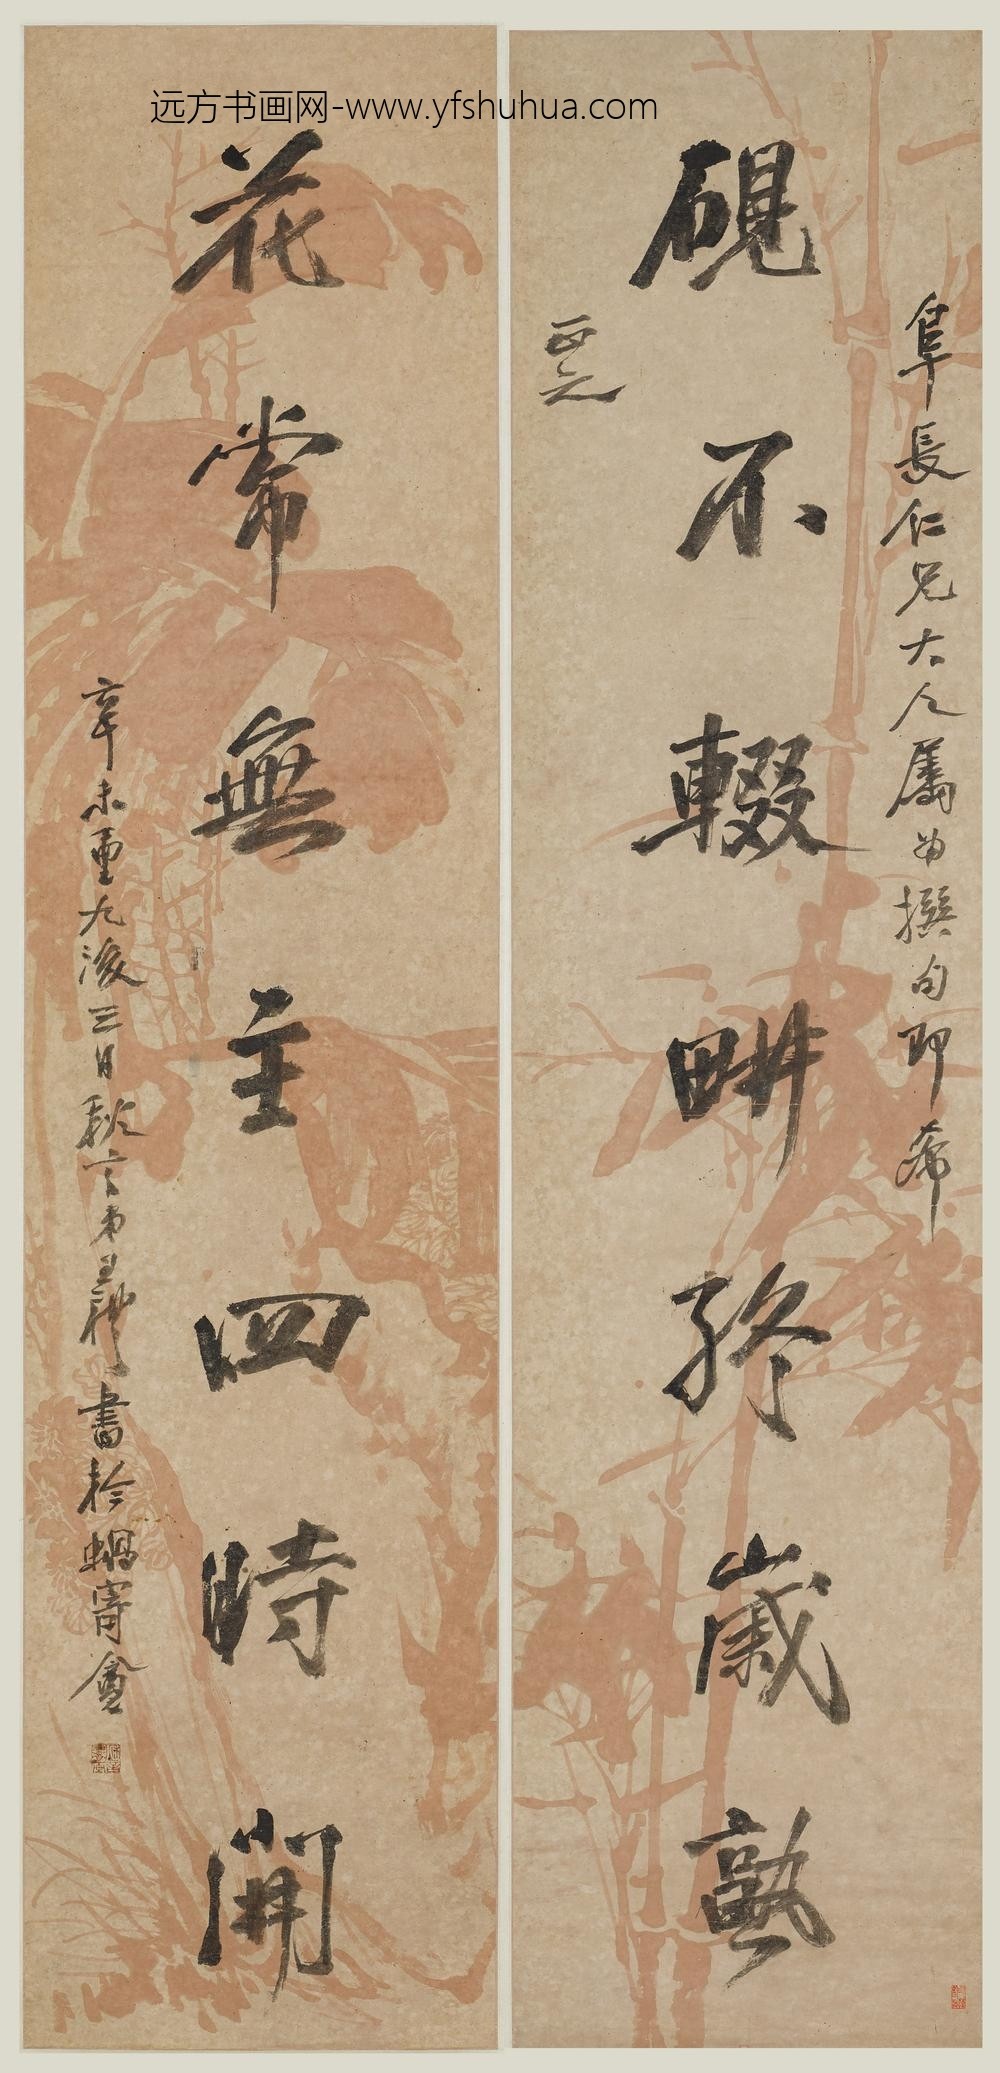 远方书画网-www.yfshuhua.com
阜長仁兄大人屬為撰句即希
硯不輟畊終歲熟
正之
花常無主四時開
辛未重九後三日秋言弟王禮書於蝸寄盦